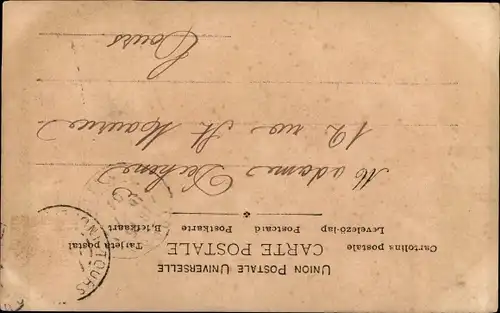 UNION POSTALE UNIVERSELLE
CARTE POSTALE
Cartolina postale
Tarjeta postal
Levelezo-lap
Postcard
Postkarte
Briefkaart
Madame
12 rue St Maurice
Tours
TOURS